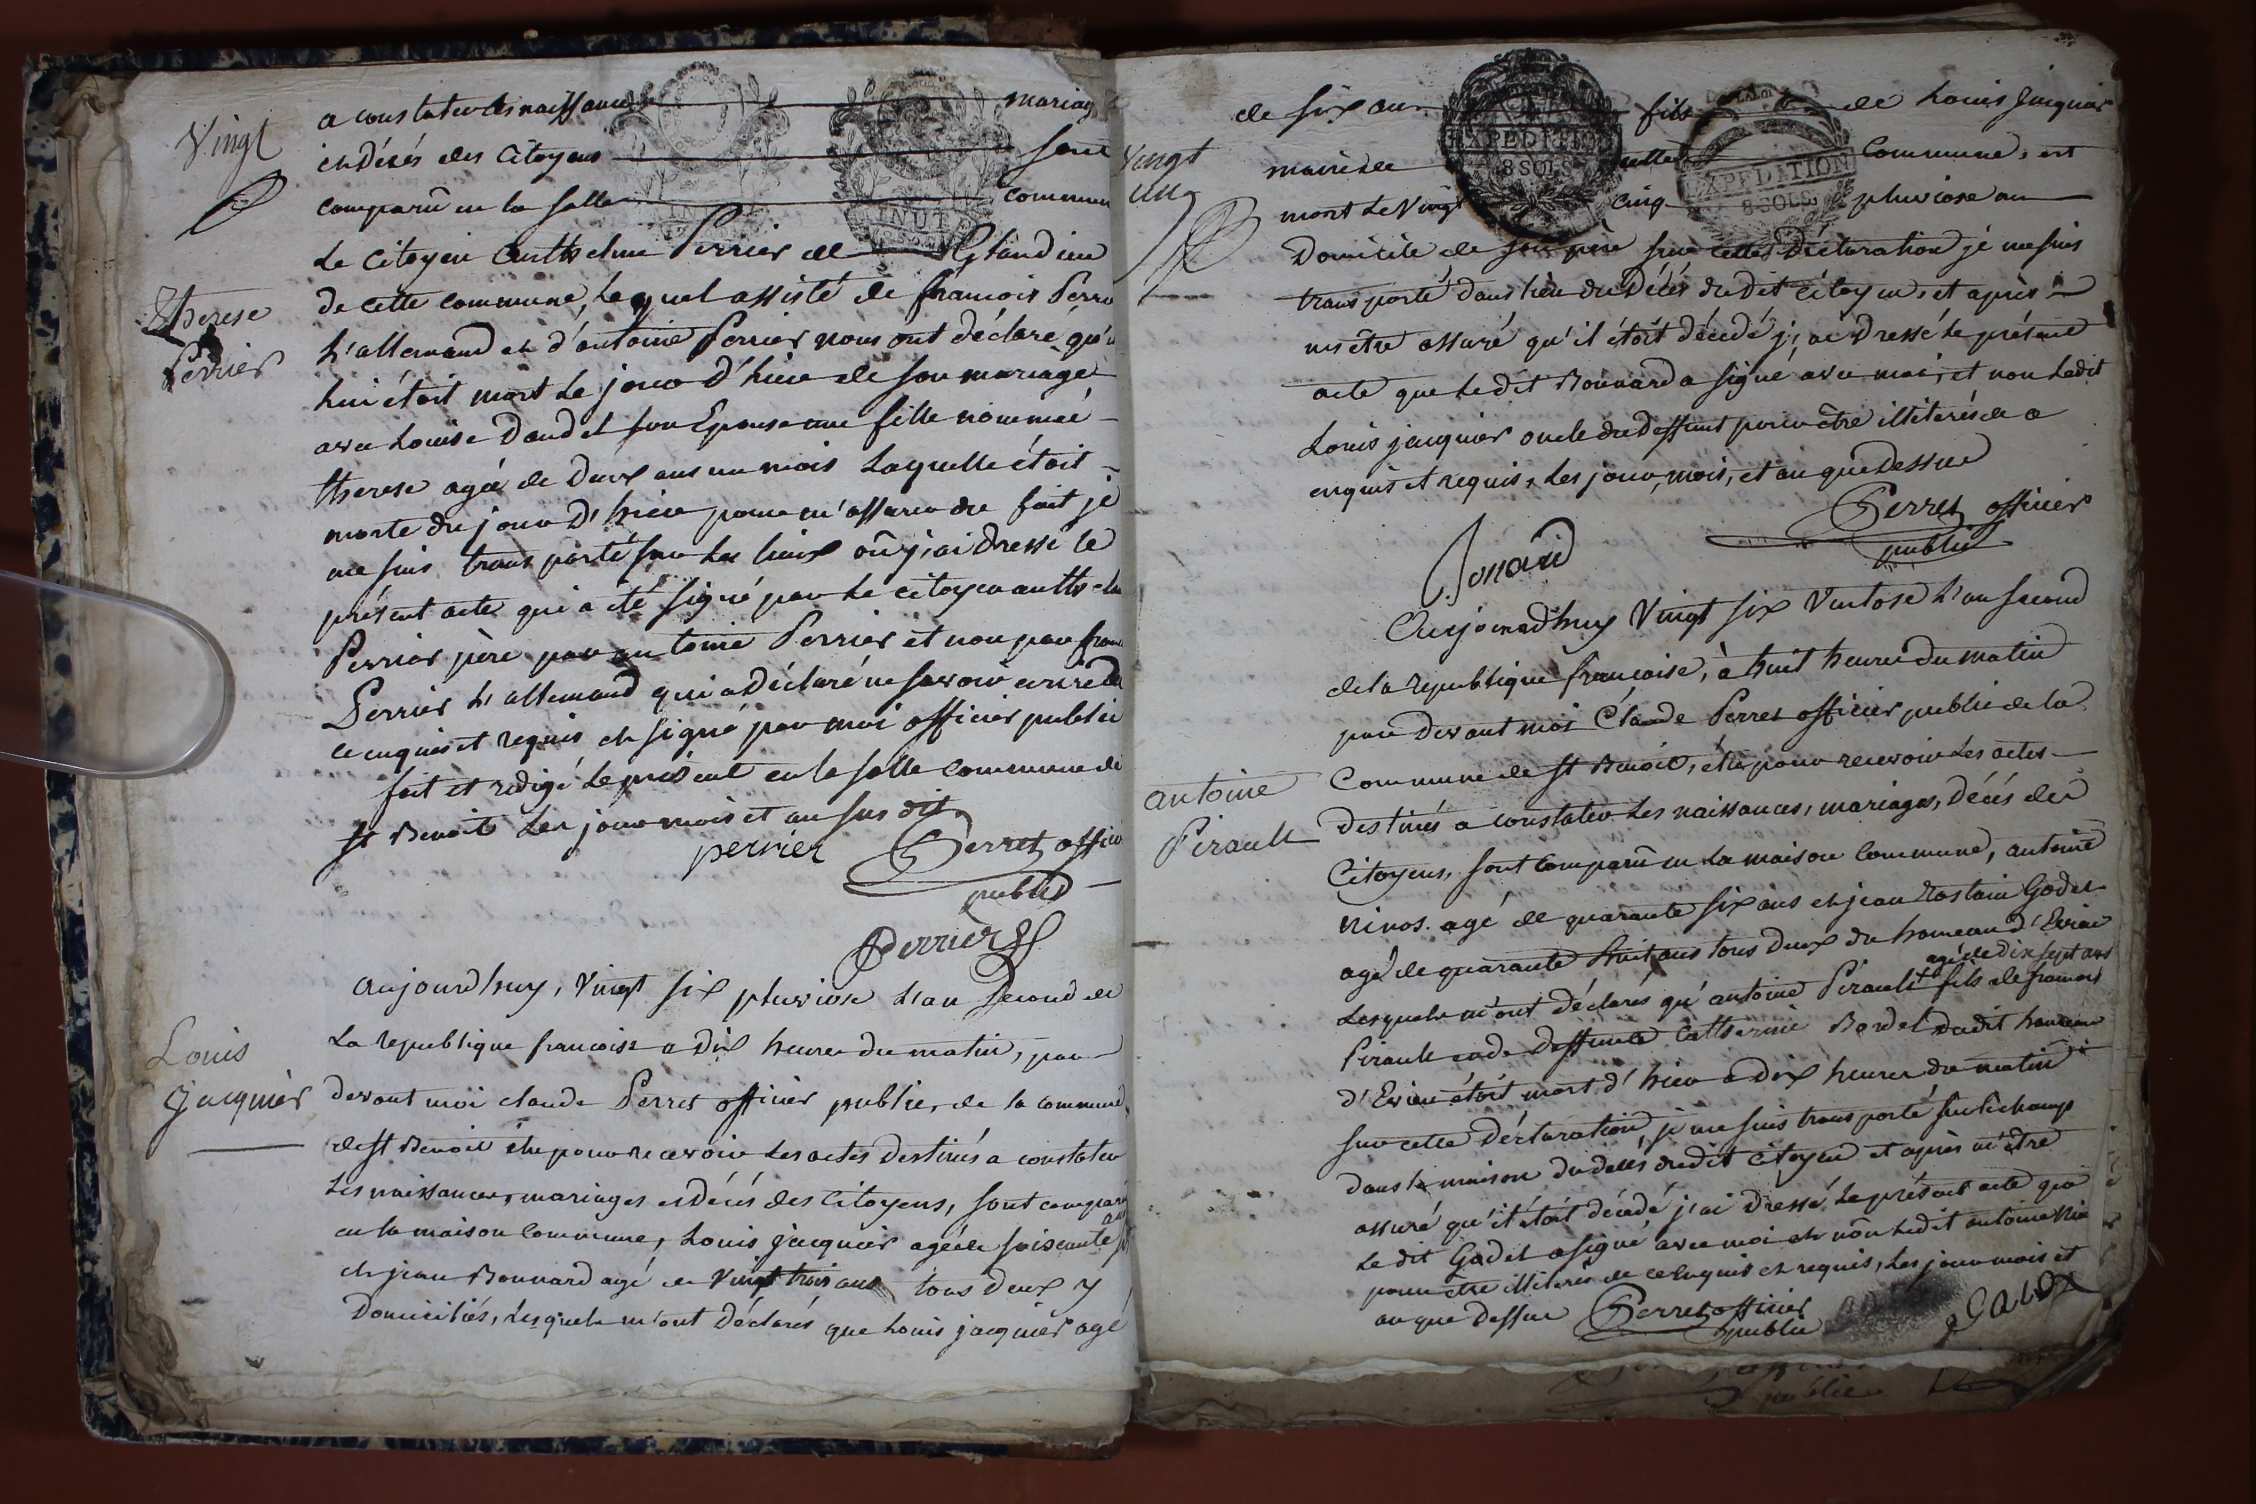 Vingt
a constater les naissances mariages
et décés des Citoyens sont
comparû en la salle commune
Therese
Perrier
Le Citoyen antthelme Perrier de Glandieu
de cette commune, Lequel assisté de francois Perrier
L'allemand et d'antoine Perrier nous ont déclaré qu'il
lui étoit mort Le jour d'hier de son mariage
avec Louise Daudet son Epouse une fille nommée
therese agée de deux ans un mois Laquelle étoit
morte du jour d'hier pour m'assurer du fait je
me suis transporté sur Les lieux où j'ai dressé le
présent acte qui a été signé par Le citoyen antthelme
Perrier père par antoine Perrier et non par francois
Perrier L'allemand qui a déclaré ne savoir ecrire de
ce enquis et requis et signé par moi officier public
fait et redigé Le présent en la salle commune de
st Benoit Les jour mois et an sus dit
perrier Perret officier
public
Perrier
Louis
Jacquier
Aujourd'huy, Vingt six pluviose L'an second de
La republique francoise a dix heures du matin, par
devant moi claude Perret officier public, de la commune
de st Benoit élu pour recevoir Les actes destinés a constater
Les naissances, mariages et décés des Citoyens, sont comparû
en la maison commune, Louis jacquier agé de soixante ans
et jean Bonnard agé de Vingt trois ans tous deux y
domiciliés, Lesquels m'ont déclarés que Louis jacquier agé
Vingt
un
de six ans fils de Louis Jacquier
maire de cette Commune, est
mort Le Vingt cinq pluviose au
EXPEDITION
8 SOLS
EXPEDITION
8 SOLS
Domicile de son père sur cette déclaration je me suis
transporté dans lieu du décés dudit citoyen, et après
m'être assuré qu'il étoit décédé j'ai dressé Le présent
acte que Ledit Bonnard a signé avec moi, et non Ledit
Louis jacquier oncle du deffunt pour être illiteré de ce
enquis et requis, Les jour, mois, et an que dessus
Perret officier
public
Bonard
Aujourdhuy Vingt six Ventose L'an second
de la republique francoise, à huit heures du matin
par devant moi Claude Perret officier public de la
Commune de st Benoit, élu pour recevoir Les actes
antoine
Pirault
destinés a constater Les naissances, mariages, décés des
Citoyens, sont comparû en La maison commune, antoine
Ninos agé de quarante six ans et jean Rostain Godet
agé de quarante huit ans tous deux du hameau d'Evieu
Lesquels m'ont déclarés qu'antoine Pirault agé de dix sept ans fils de francois
Pirault et de deffunte Catherine Bordel dudit hameau
d'Evieu étoit mort d'hier a dix heures du matin
sur cette déclaration, je me suis transporté sur le champ
dans la maison du décés dudit citoyen et après m'être
assuré qu'il étoit décédé j'ai dressé Le présent acte que
Le dit Godet a signé avec moi et non Ledit antoine Nin
pour être illiteré de ce enquis et requis, Les jour mois et
an que dessus Perret officier
public